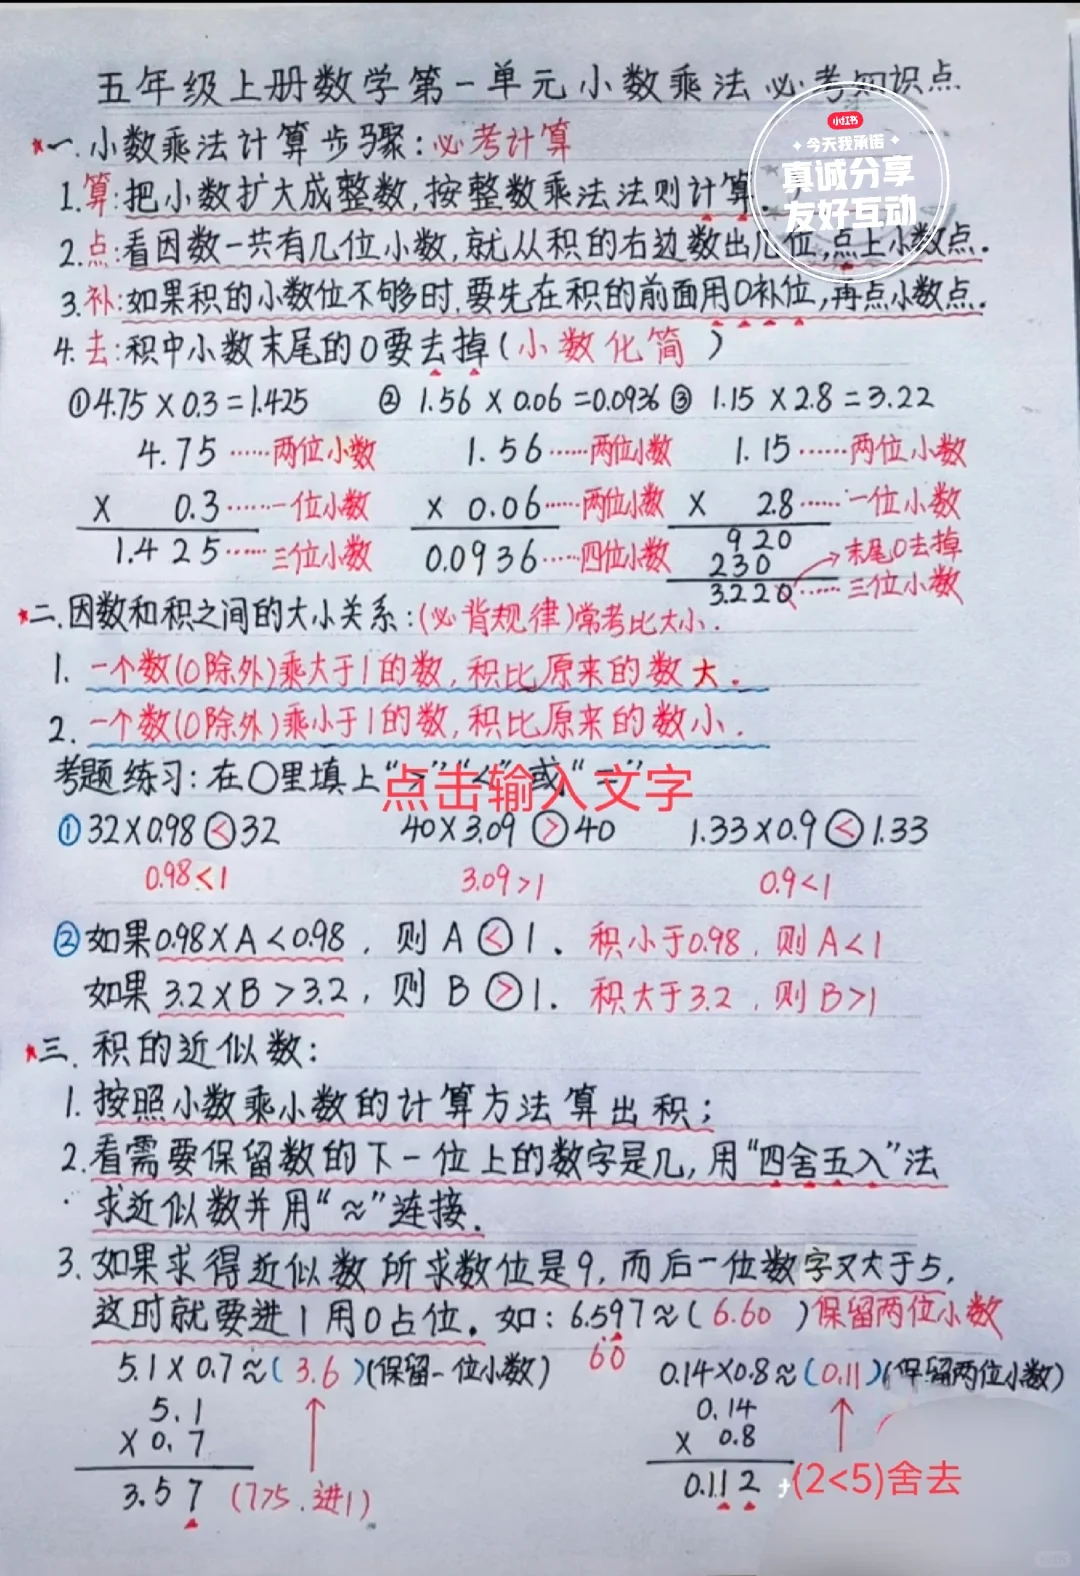 五年级上册数学第一单元小数乘法必考知识点
小红书
今天我承诺
真诚分享
友好互动
★一.小数乘法计算步骤:必考计算
1.算:把小数扩大成整数,按整数乘法法则计算.
2.点:看因数一共有几位小数,就从积的右边数出几位,点上小数点.
3.补:如果积的小数位不够时.要先在积的前面用0补位,再点小数点.
4.去:积中小数末尾的0要去掉(小数化简)
①4.75×0.3=1.425 ②1.56×0.06=0.0936 ③1.15×2.8=3.22
4.75……两位小数 1.56……两位小数 1.15……两位小数
× 0.3……一位小数 × 0.06……两位小数 × 2.8……一位小数
1.425……三位小数 0.0936……四位小数 920
230 末尾0去掉
3.220……三位小数
★二.因数和积之间的大小关系:(必背规律)常考比大小.
1.一个数(0除外)乘大于1的数,积比原来的数大.
2.一个数(0除外)乘小于1的数,积比原来的数小.
考题练习:在○里填上“>”“<”或“=”
点击输入文字
①32×0.98<32 40×3.09>40 1.33×0.9<1.33
0.98<1 3.09>1 0.9<1
②如果0.98×A<0.98,则A<1.积小于0.98,则A<1
如果3.2×B>3.2,则B>1.积大于3.2,则B>1
★三.积的近似数:
1.按照小数乘小数的计算方法算出积;
2.看需要保留数的下一位上的数字是几,用“四舍五入”法
求近似数并用“≈”连接.
3.如果求得近似数所求数位是9,而后一位数字又大于5,
这时就要进1用0占位.如:6.597≈(6.60)保留两位小数
60
5.1×0.7≈(3.6)(保留一位小数) 0.14×0.8≈(0.11)(保留两位小数)
5.1 0.14
×0.7 × 0.8
3.57 (7>5.进1) 0.112,(2<5)舍去